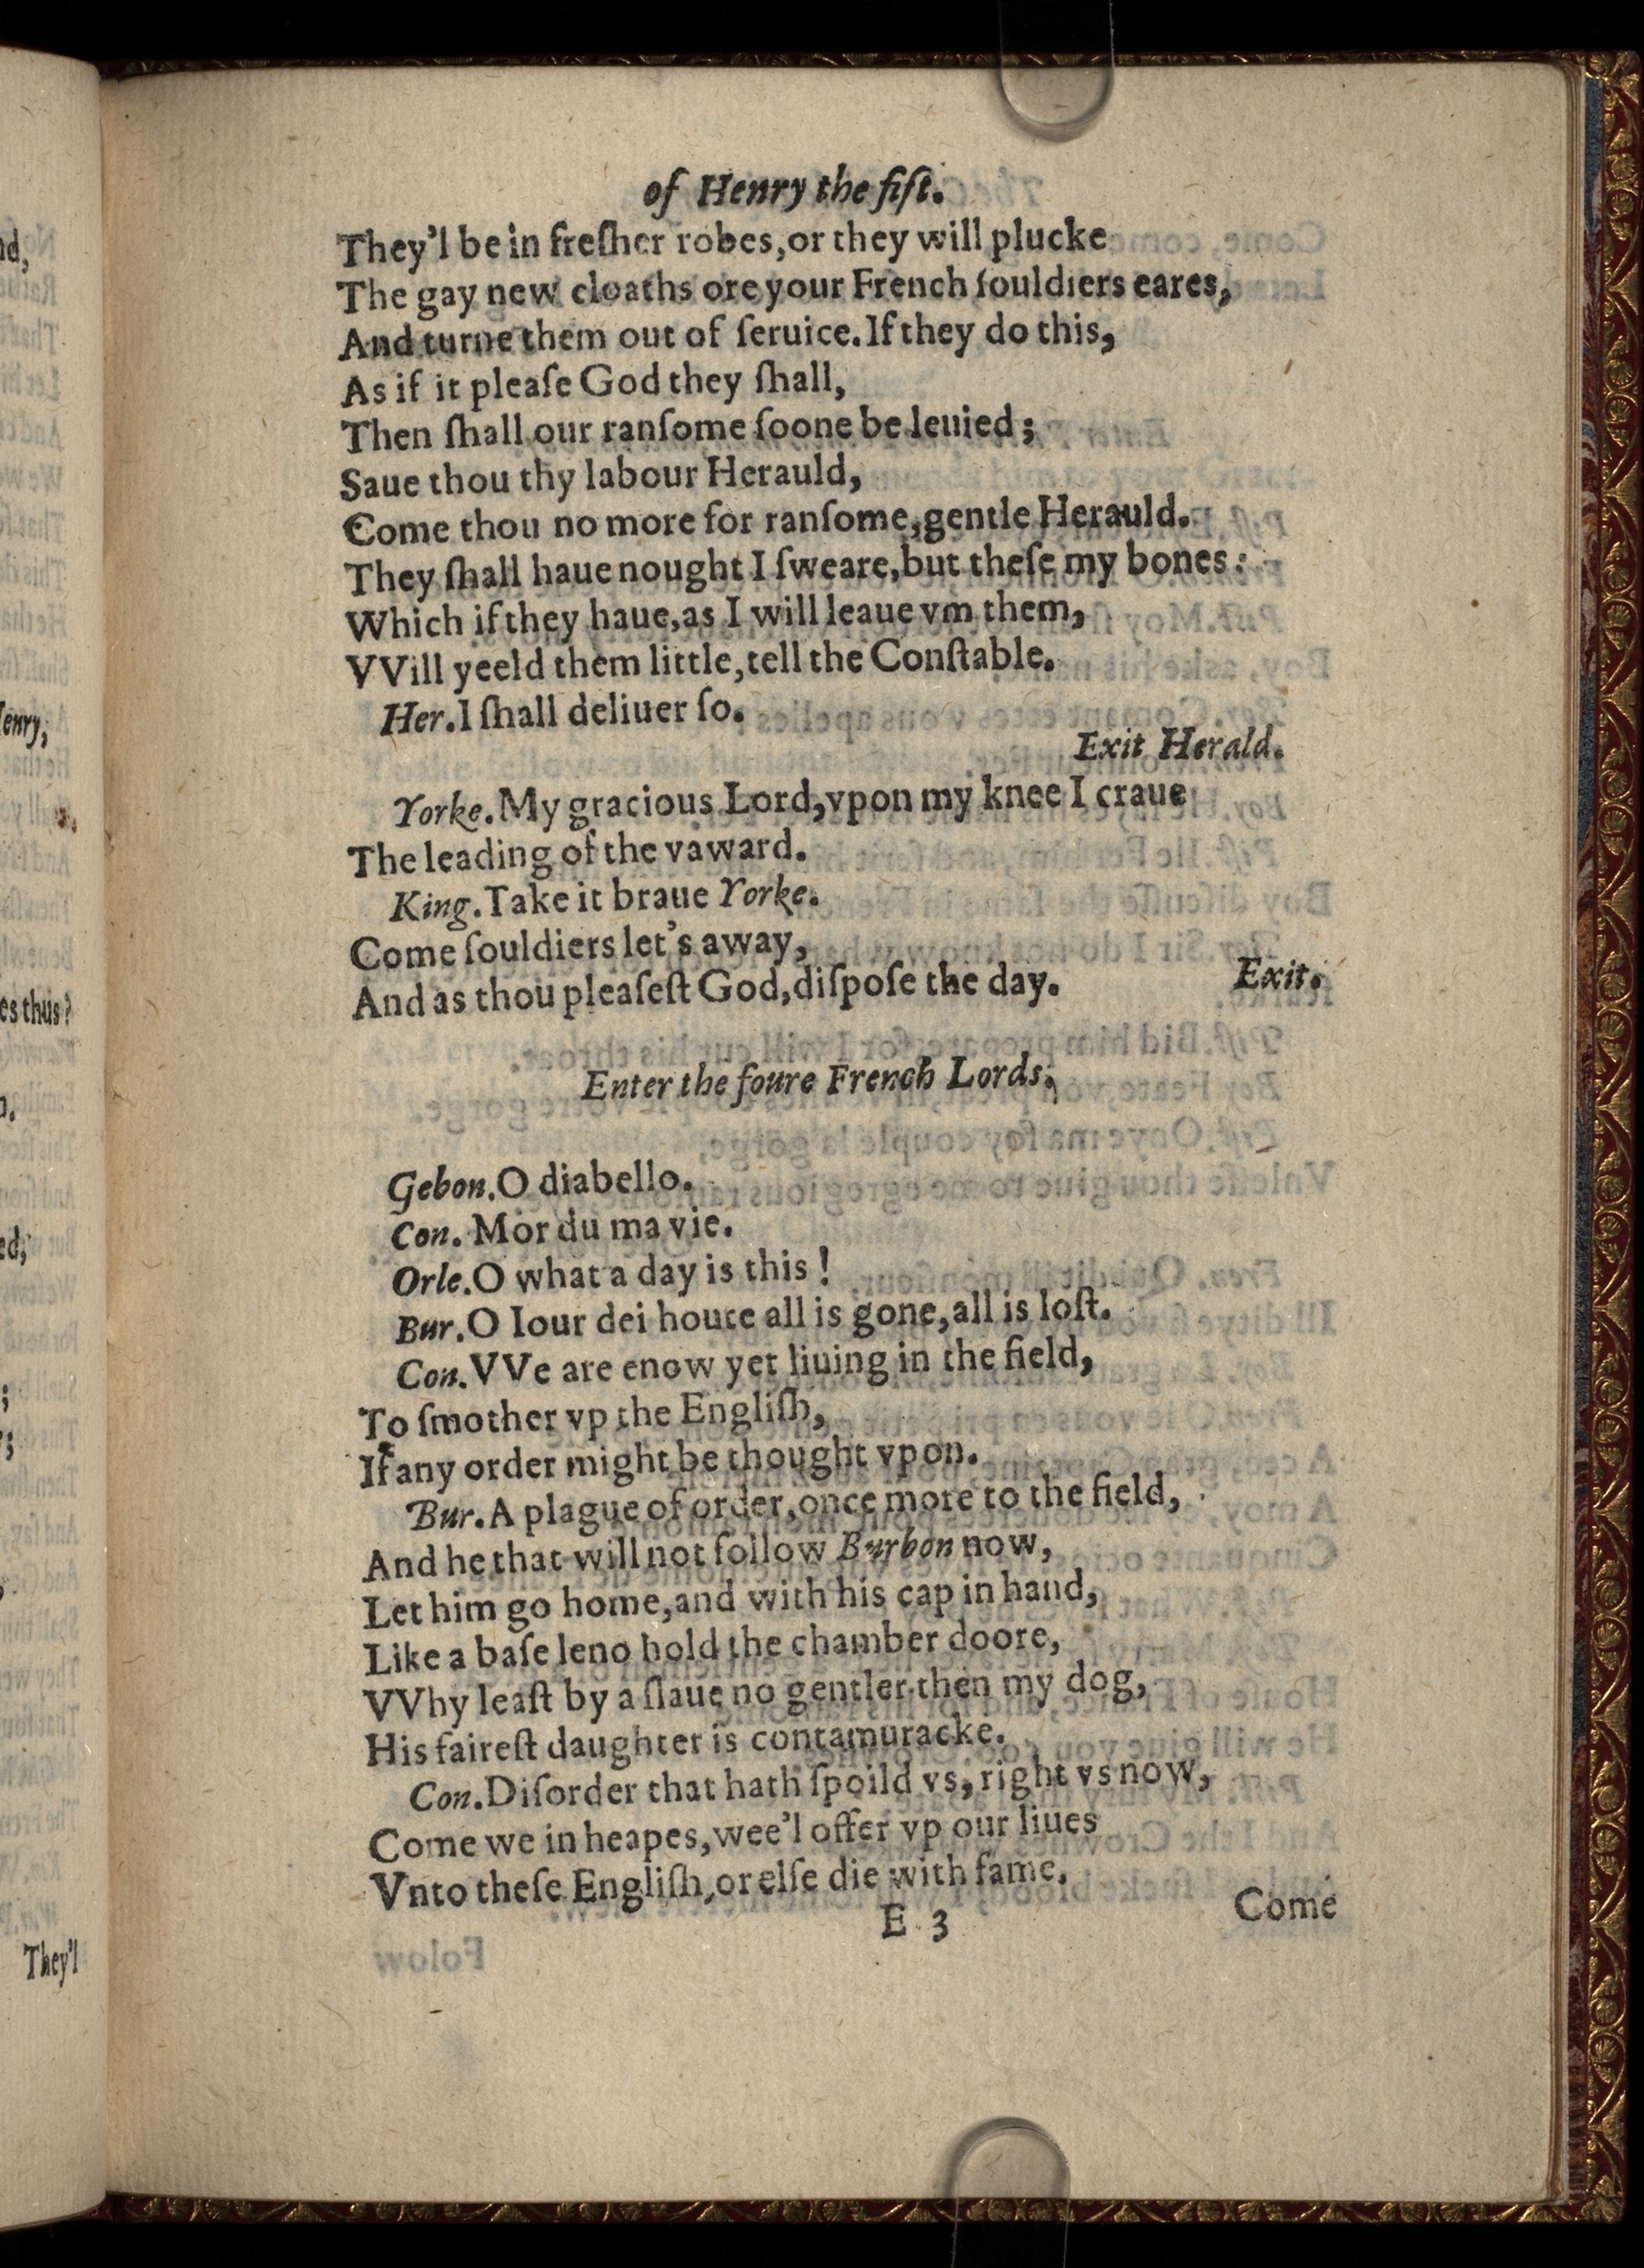 of Henry the fift.
They'l be in freſher robes,or they will plucke
The gay new cloaths ore your French ſouldiers eares,
And turne them out of ſeruice.If they do this,
As if it pleaſe God they ſhall,
Then ſhall our ranſome ſoone be leuied;
Saue thou thy labour Herauld,
Come thou no more for ranſome,gentle Herauld.
They ſhall haue nought I ſweare,but theſe my bones:
Which if they haue,as I will leaue vm them,
VVill yeeld them little,tell the Conſtable.
Her.I ſhall deliuer ſo.
Exit Herald.
Yorke.My gracious Lord,vpon my knee I craue
The leading of the vaward.
King.Take it braue Yorke.
Come ſouldiers let's away,
And as thou pleaſeſt God,diſpoſe the day. Exit.
Enter the foure French Lords.
Gebon.O diabello.
Con. Mor du ma vie.
Orle.O what a day is this!
Bur.O Iour dei houte all is gone,all is loſt.
Con.VVe are enow yet liuing in the field,
To ſmother vp the Engliſh,
If any order might be thought vpon.
Bur.A plague of order,once more to the field,
And he that will not follow Burbon now,
Let him go home,and with his cap in hand,
Like a baſe leno hold the chamber doore,
VVhy leaſt by a ſlaue no gentler then my dog,
His faireſt daughter is contamuracke.
Con.Diſorder that hath ſpoild vs,right vs now,
Come we in heapes,wee'l offer vp our liues
Vnto theſe Engliſh,or elſe die with fame.
E 3 Come